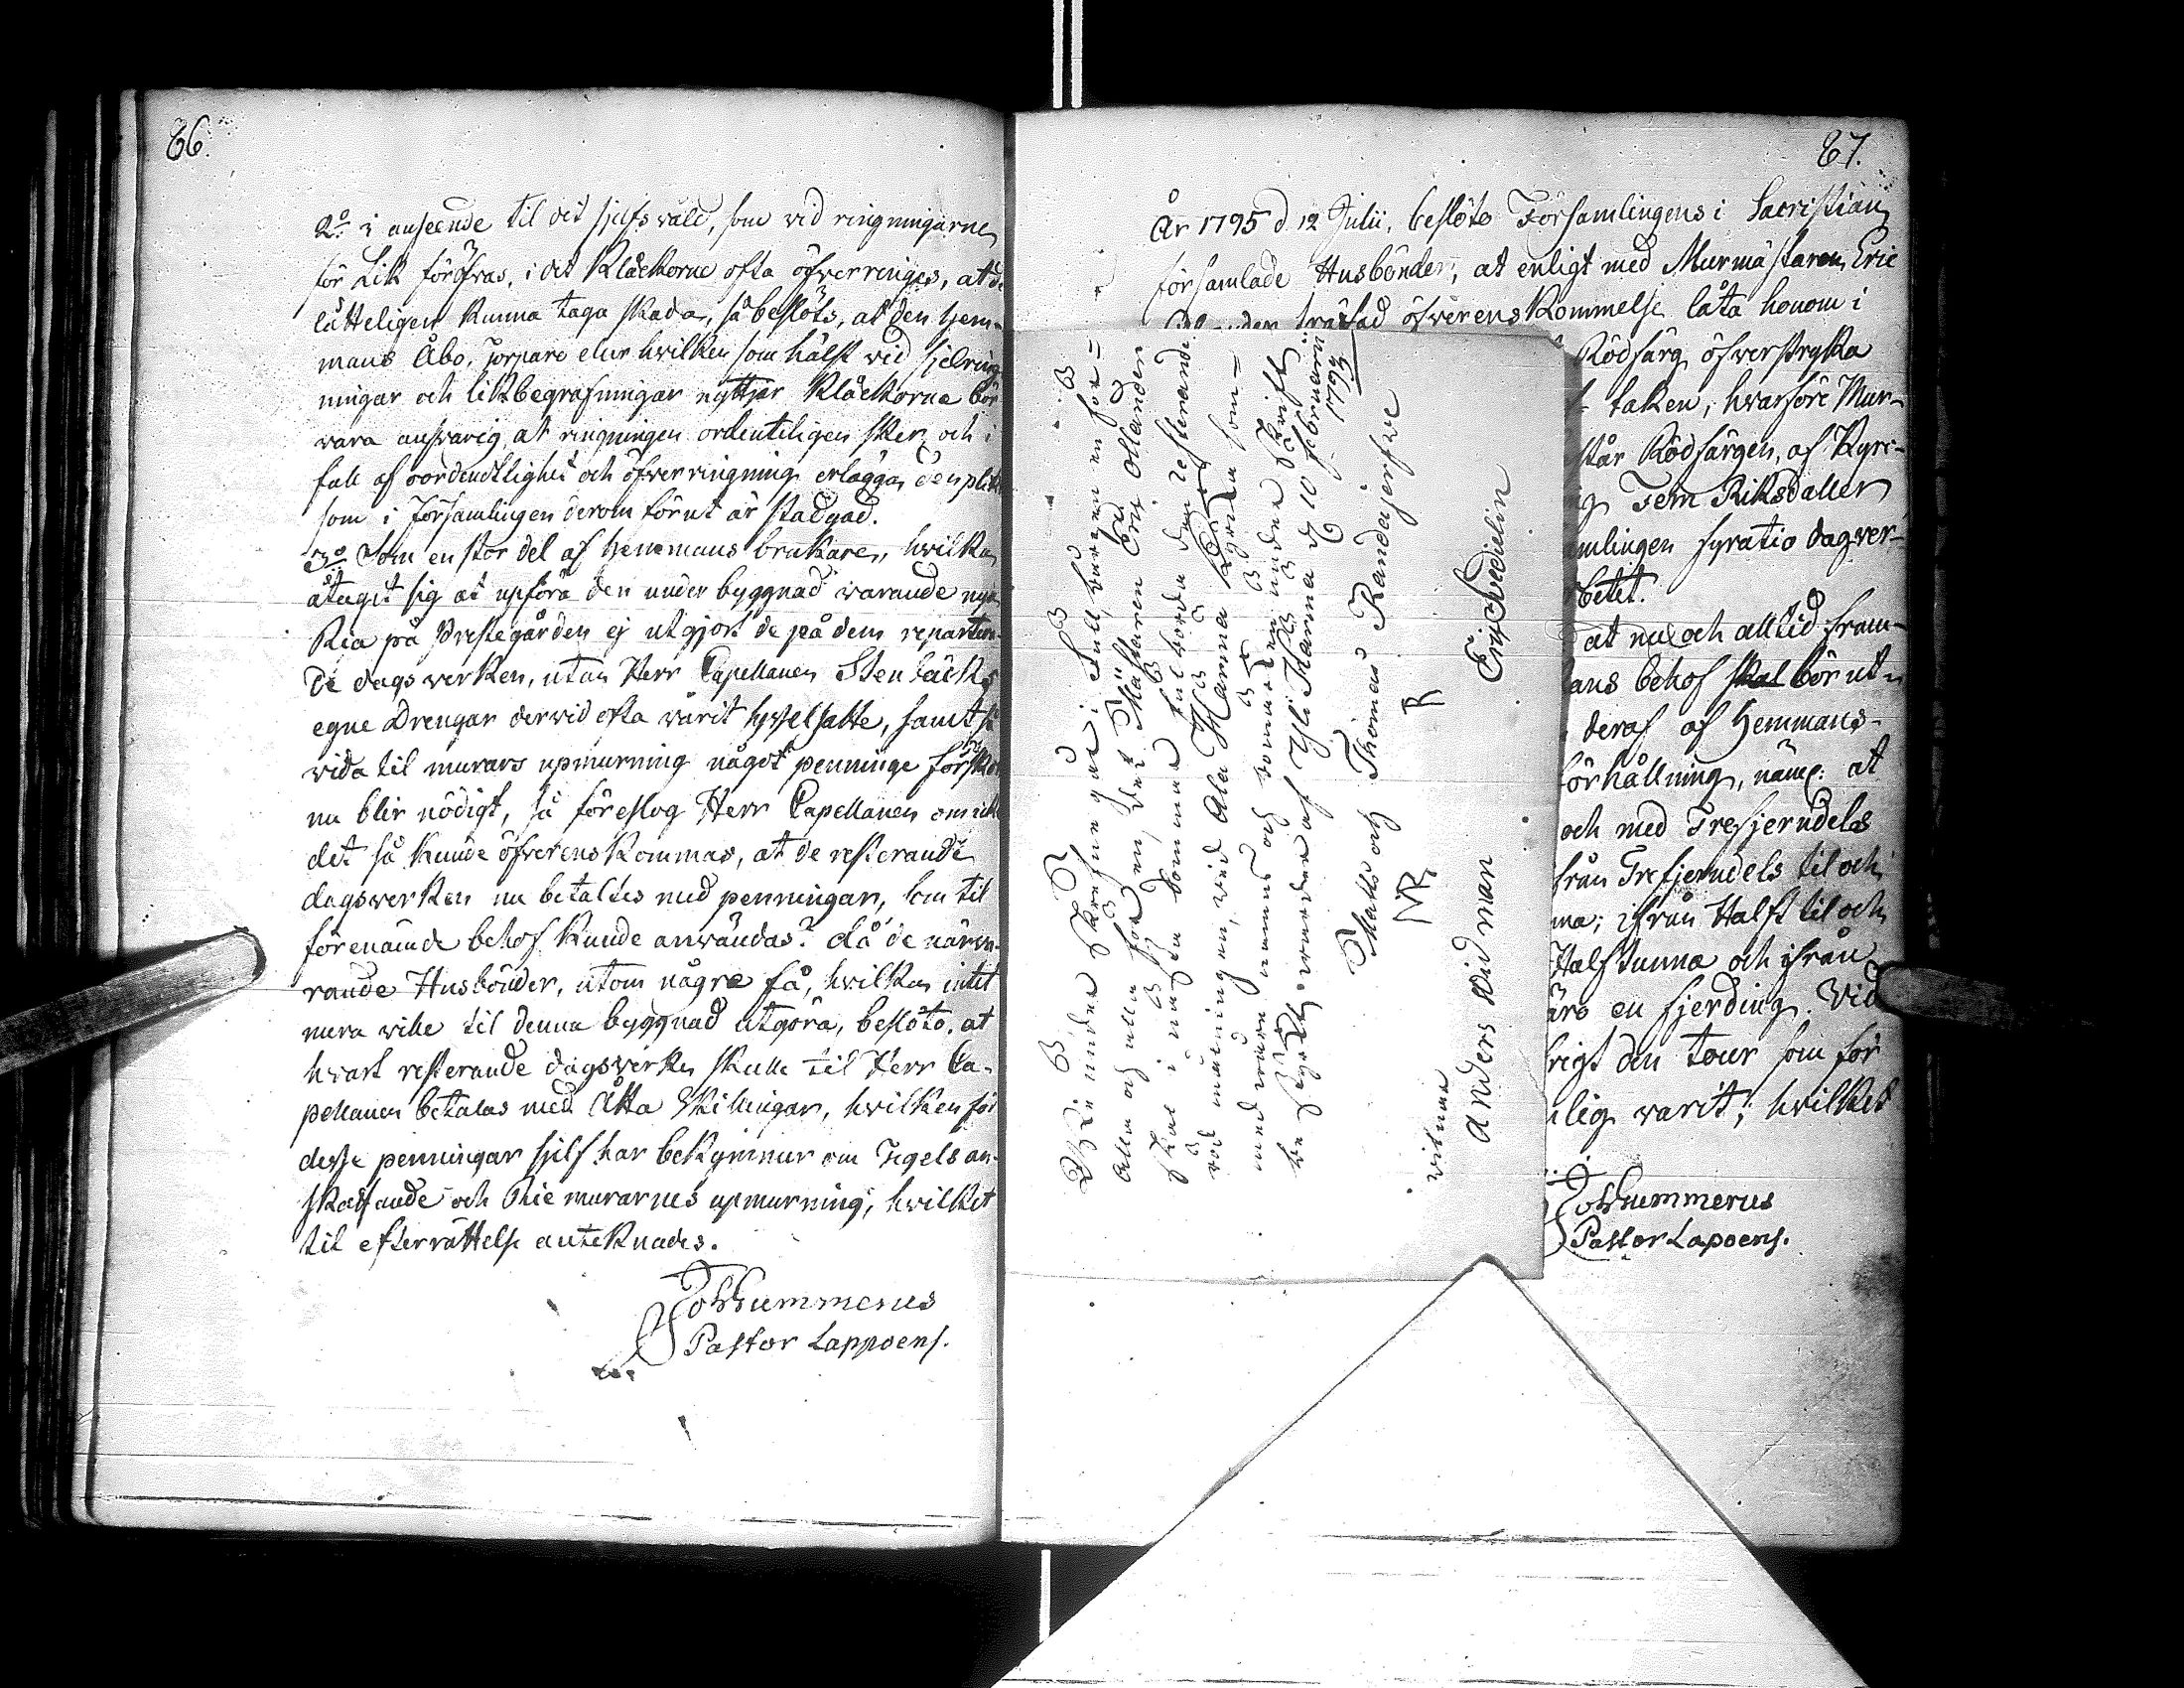 66.
2:o i anseende til det sjelfsvåld, som vid ringningarne
för Lik föröfvas, i det Klåckorne ofta öfverringes, at de
lätteligen kunna taga skada, så beslöts, at den hem-
mans Åbo, Torpare eller hvilken som hälst vid sjelring-
ningar och likbegrafningar nyttjar Klåckorna bör
vara ansvarig, at ringningen ordenteligen sker, och i
fall af oordentlighet och öfverringning erlägga den plikt
som i Församlingen derom förut är stadgad.
3:o Som en stor del af Hemmans brukaren, hvilka
åtagit sig at upföra den under byggnad varande nya
Ria på Prestegården ej utgjort de på dem repartera-
de dagsverken, utan Herr Capellanen Stenbäcks
egne Drengar dervid ofta varit sysselsatte, samt så
vida til murars upmurning något penninge förskott
nu blir nödigt, så föreslog Herr Capellanen om icke
det så kunde öfverenskommas, at de resterande
dagsverken nu betaltes med penningar, som til
förenämde behof kunde användas? då de närva-
rande Husbönder, utom någre få, hvilka intet
mera ville til denna byggnad utgöra, beslöto, at
hvart resterande dagsverke skulle til Herr Ca-
pellanen betalas med Åtta Skillingar, hvilken för
desse penningar sjelf har bekymmer om Tegels an-
skaffande och Rie murarnes upmurning; hvilket
til efterrättelse anteknades.
Joh Hummerus
Pastor Lappoens.
67.
År 1795 d. 12 Julii, beslöto Församlingens i Sacristian
församlade Husbönder, at enligt med Murmästaren Eric
träffad öfverenskommelse låta honom i
Rödfärg öfverstryka
taken, hvarföre Mur-
står Rödfärgen, af Kyrc-
Fem Riksdaller
mlingen fyratio dagsver-
betet.
at nu och alltid fram-
ans behof skal bör ut-
deraf af Hemmans-
förhållning, näml: at
och med Trefjerndels
från Trefjerndels til och
ma; ifrån Halft til och
Halftunna och ifrån
äro en fjerding. Vid
rigt den tour som för
lig varit; hvilket
Joh Hummerus
Pastor Lapoens.
under skrefne gåå i full borgen en för
alla och alla för en, vid Målaren Eric Ollander
skal i näste Sommar fulborda den resterande
rödmålningen, vid Ala Härmä Kyrka som
med wåre namns och bomärken under skrift
be kräftt warder af Yli Härmä d 10 februarii
1793
Matts och Thomas Kandajerfwe
MR R
witnar
anders widman Eric Svedelin